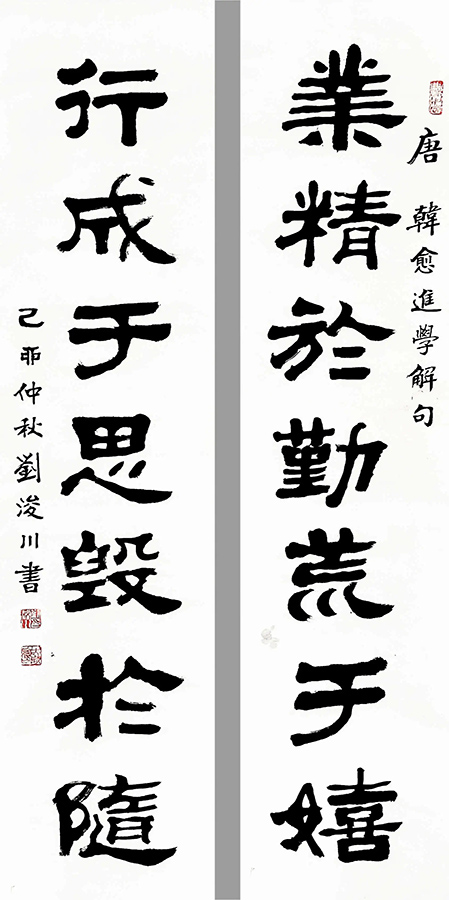 唐 韓愈進學解句
業精於勤荒于嬉
行成于思毀於隨
己卯仲秋劉浚川書